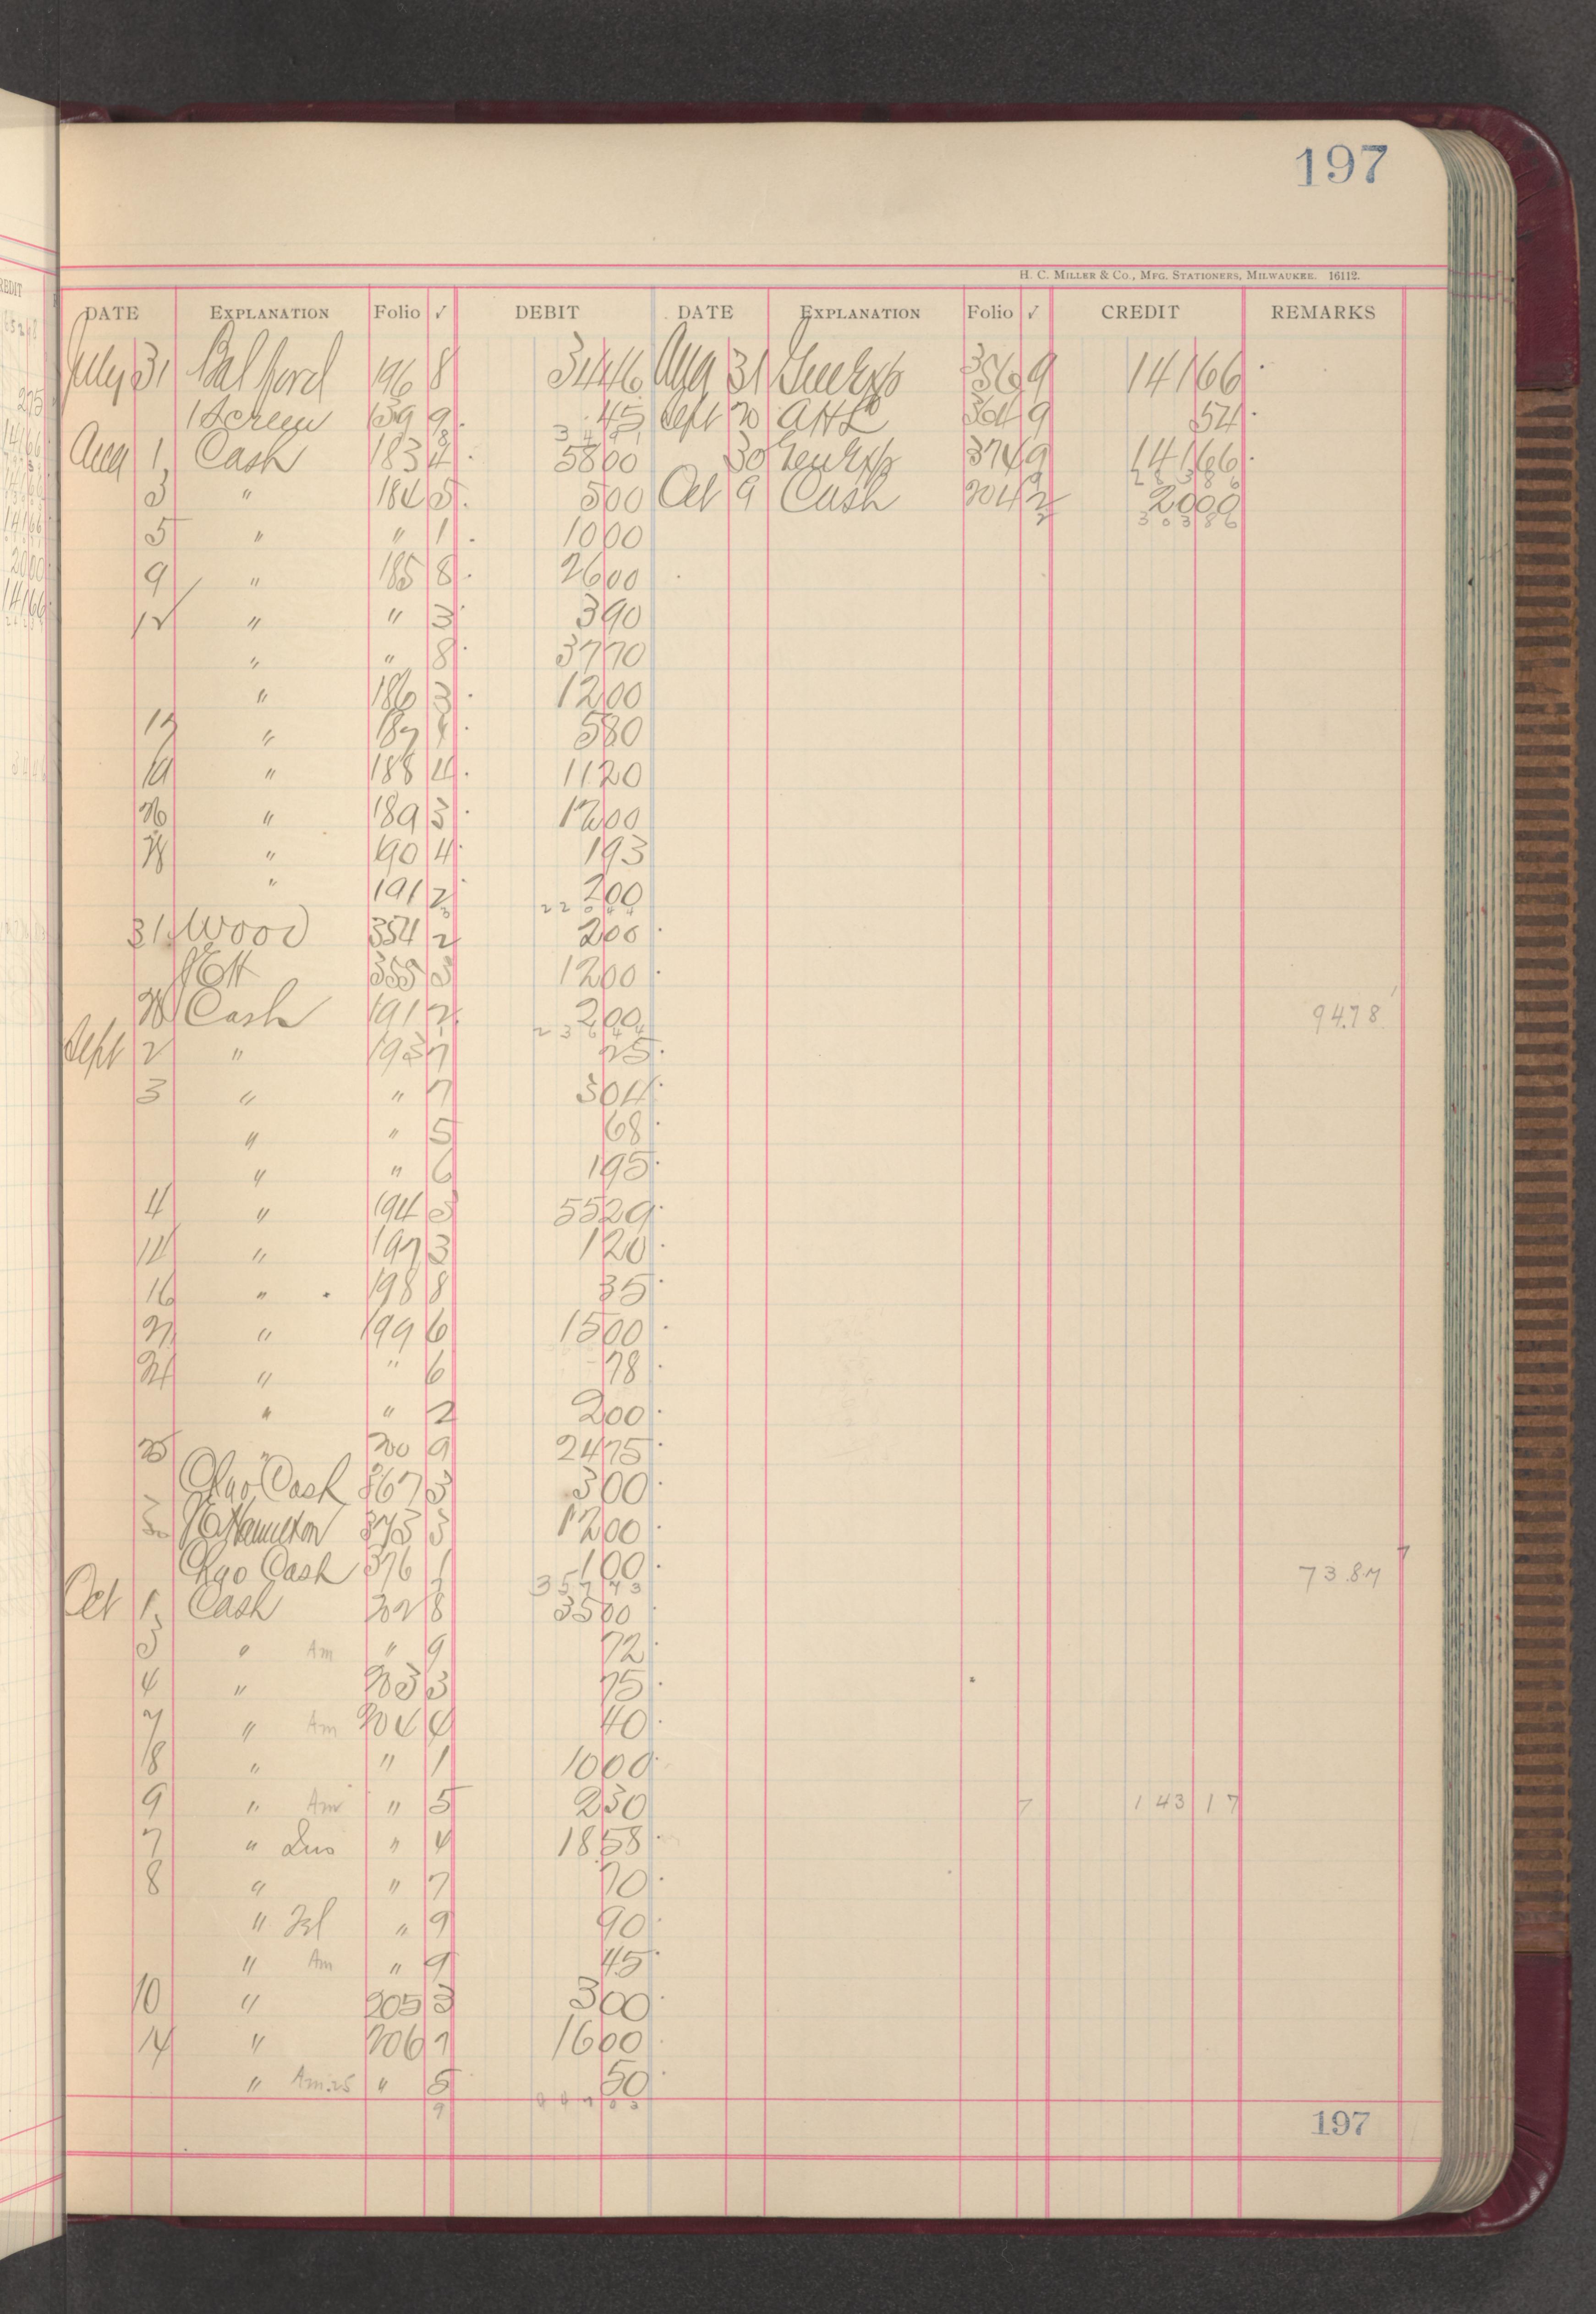 197
H. C. MILLER & CO., MFG. STATIONERS, MILWAUKEE. 16112.
DATE EXPLANATION Folio ✓ DEBIT DATE EXPLANATION Folio ✓ CREDIT REMARKS
July 31 Bal ford 196 8 3446 Aug 31 Gen Exp 356 9 14166
1 Screen 139 9 45 Sept 20 AHL 364 9 54
3 4 9 1
Aug 1 Cash 183 4 5800 30 Gen Exp 374 9 14166
2 8 3 8 6
3 " 184 5 500 Oct 9 Cash 204 2 2000
3 0 3 8 6
5 " " 1 1000
9 " 185 8 2600
12 " " 3 390
" " 8 3770
" 186 3 1200
17 " 187 580
19 " 188 4 1120
26 " 189 3 1200
28 " 190 4 193
" 191 2 200
2 2 0 4 4
31 Wood 354 2 200
JEH 355 3 1200
28 Cash 191 2 200 94.78
2 3 6 4 4
Sept 2 " 193 7 25
3 " " 7 304
" " 5 68
" " 6 195
4 " 194 3 5529
14 " 197 3 120
16 " 198 8 35
21 " 199 6 1500
24 " " 6 78
" " 2 200
25 " 200 9 2475
Chgo Cash 367 3 300
30 JE Hamilton 373 3 1200
Chgo Cash 376 1 100 73.87
3 5 7 7 3
Oct 1 Cash 202 8 3500
3 " Am " 9 72
4 " 203 3 75
7 " Am 204 4 40
8 " " 1 1000
9 " Am " 5 230 7 143 17
7 " Ins " 4 1858
8 " " 7 70
" Tel " 9 90
" Am " 9 45
10 " 205 3 300
14 " 206 7 1600
" Am .25 " 5 50
9 4 4 7 0 3
197